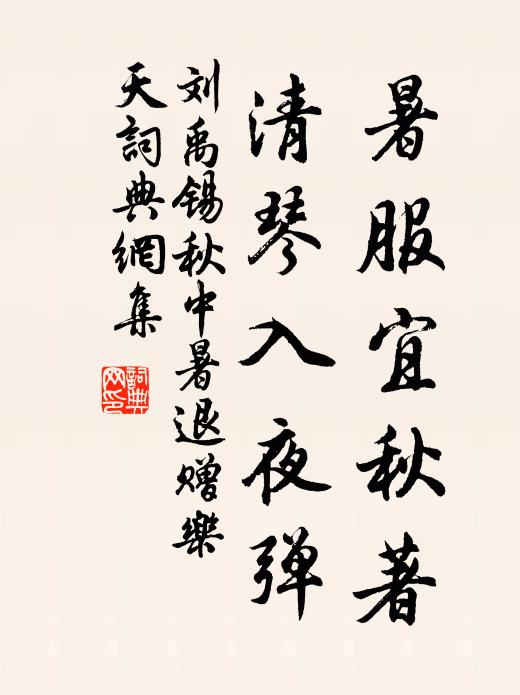 暑服宜秋著
清琴入夜彈
刘禹锡秋中暑退赠樂
天詞典網集
詞典
网印